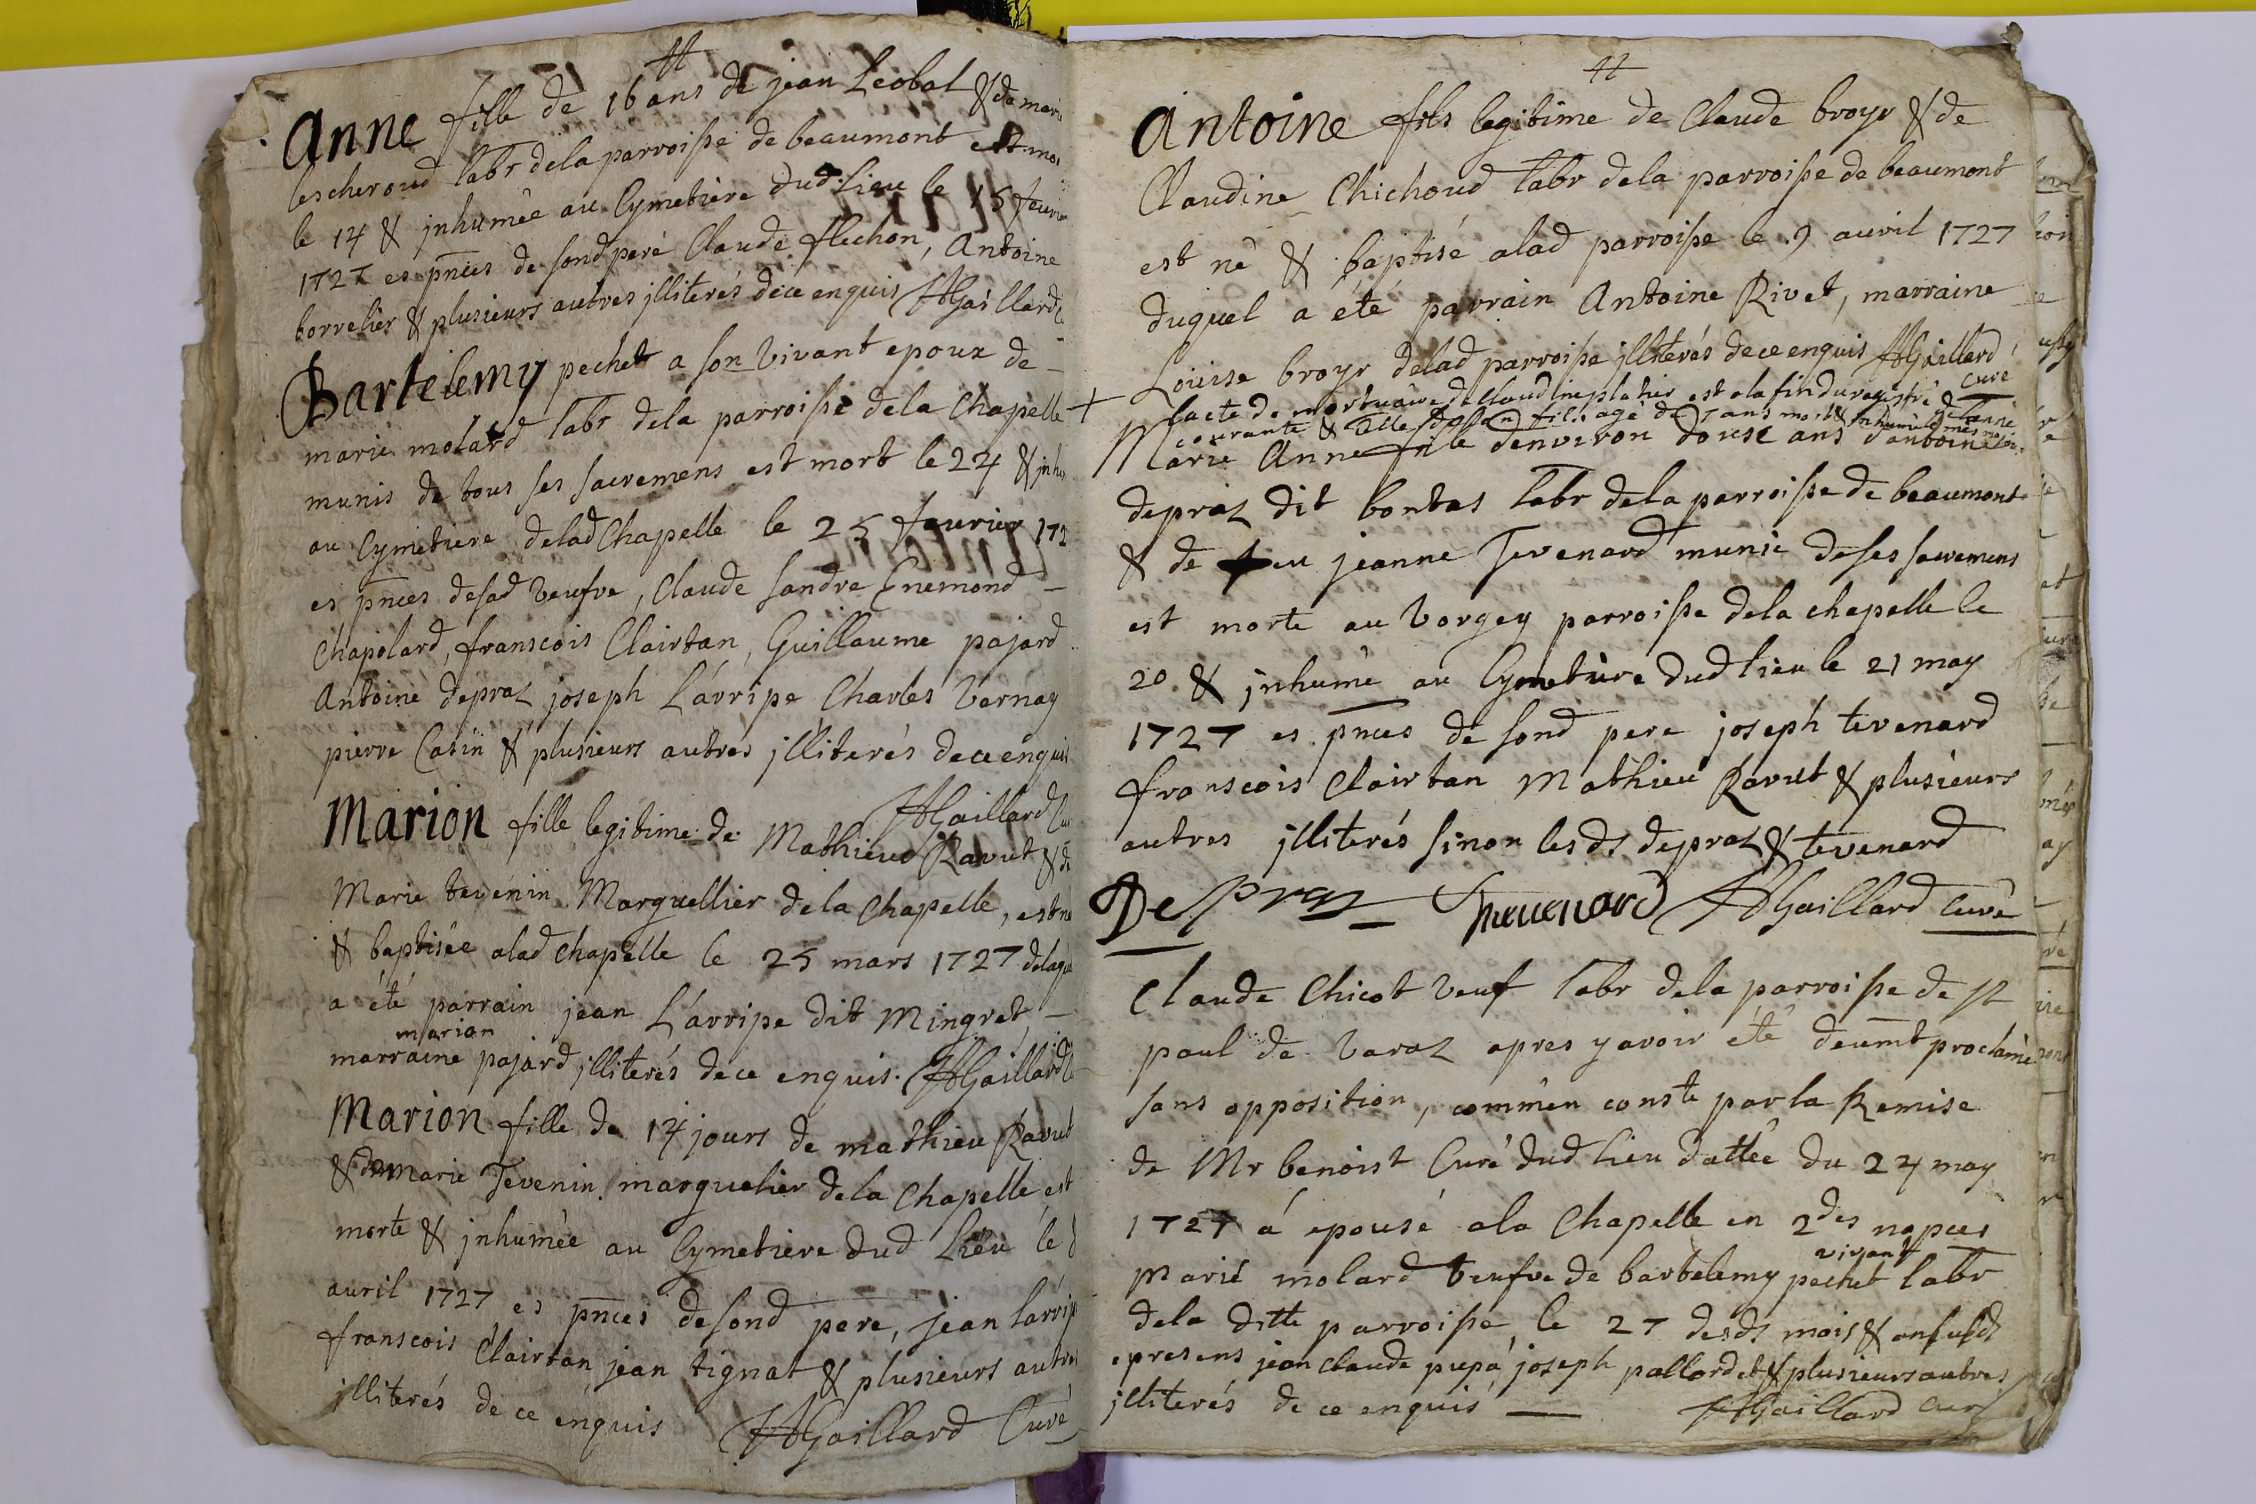 Anne fille de 16 ans de jean Leobal & de marie
lescheroud labr dela parroisse de beaumont est mor
le 14 & jnhumée au Cymetiere dud. lieu le 15 feurier
1727 es pnces de sond pere Claude flechon, Antoine
borrelier & plusieurs autres jlliterés dece enquis HGaillard
Bartelemy pechet a son vivant epoux de
marie molard labr dela parroisse dela Chapelle
munis de tous ses sacremens est mort le 24 & jnhu
au Cymetiere delad Chapelle le 25 feurier 172
es pnces desad veufve, Claude sandre Enemond
Chapolard, franscois Clairtan, Guillaume pajard
Antoine depraz joseph Larripe Charles Vernay
pierre Casin & plusieurs autres jlliterés dece enquis
HGaillard Cu
Marion fille legitime de Mathieu Ravut & de
Marie tevenin Marguellier dela Chapelle, est né
& baptisée alad Chapelle le 25 mars 1727 delaque
a été parrain jean Larripe dit Mingret
marion
marraine pajard jlliterés de ce enquis. HGaillard C
Marion fille de 14 jours de mathieu Ravut
& de marie Tevenin marguelier dela Chapelle est
morte & jnhumée au Cymetiere dud Lieu le
auril 1727 es pnces de sond pere, jean larrip
franscois Clairtan jean tignat & plusieurs autres
jlliterés de ce enquis HGaillard Curé
Antoine fils legitime de Claude broyr & de
Claudine Chichoud labr dela parroisse de beaumont
est né & baptisé alad parroisse le 9 auril 1727
duquel a été parrain Antoine Rivet, marraine
Louise broyr delad parroisse jlliterés dece enquis HGaillard
Curé
+ lacte de mortuaire de Claud inplatier est ala fin du registre de lannée
courante & fils agé de 7 ans mort & jnhumé
Marie Anne fille denviron douse ans dantoine
depraz dit bontas labr dela parroisse de beaumont
& de feu jeanne Tevenard munie de ses sacremens
est morte au Vorgey parroisse dela chapelle le
20 & jnhumé au Cymetiere dud lieu le 21 may
1727 es pnces de sond pere joseph tevenard
franscois Clairtan Mathieu Ravut & plusieurs
autres jlliterés sinon lesds depraz & tevenard
Depraz Theuenard HGaillard Curé
Claude Chicot veuf labr dela parroisse de st
paul de Varaz apres y avoir été deumt proclamé
sans opposition, comm'en conste par la Remise
de Mr benoist Curé dud lieu dattée du 24 may
1727 á epousé ala Chapelle en 2des nopces
vivant
Marie molard Veufve de bartelemy pechet labr
dela ditte parroisse, le 27 desds mois & an susds
presens jean claude pupa, joseph pallordet & plusieurs autres
jlliterés de ce enquis HGaillard Curé